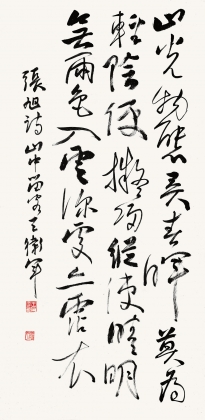 山光物態弄春暉莫為
輕陰便擬歸縱使晴明
無雨色入雲深處亦霑衣
張旭詩山中留客王衛軍